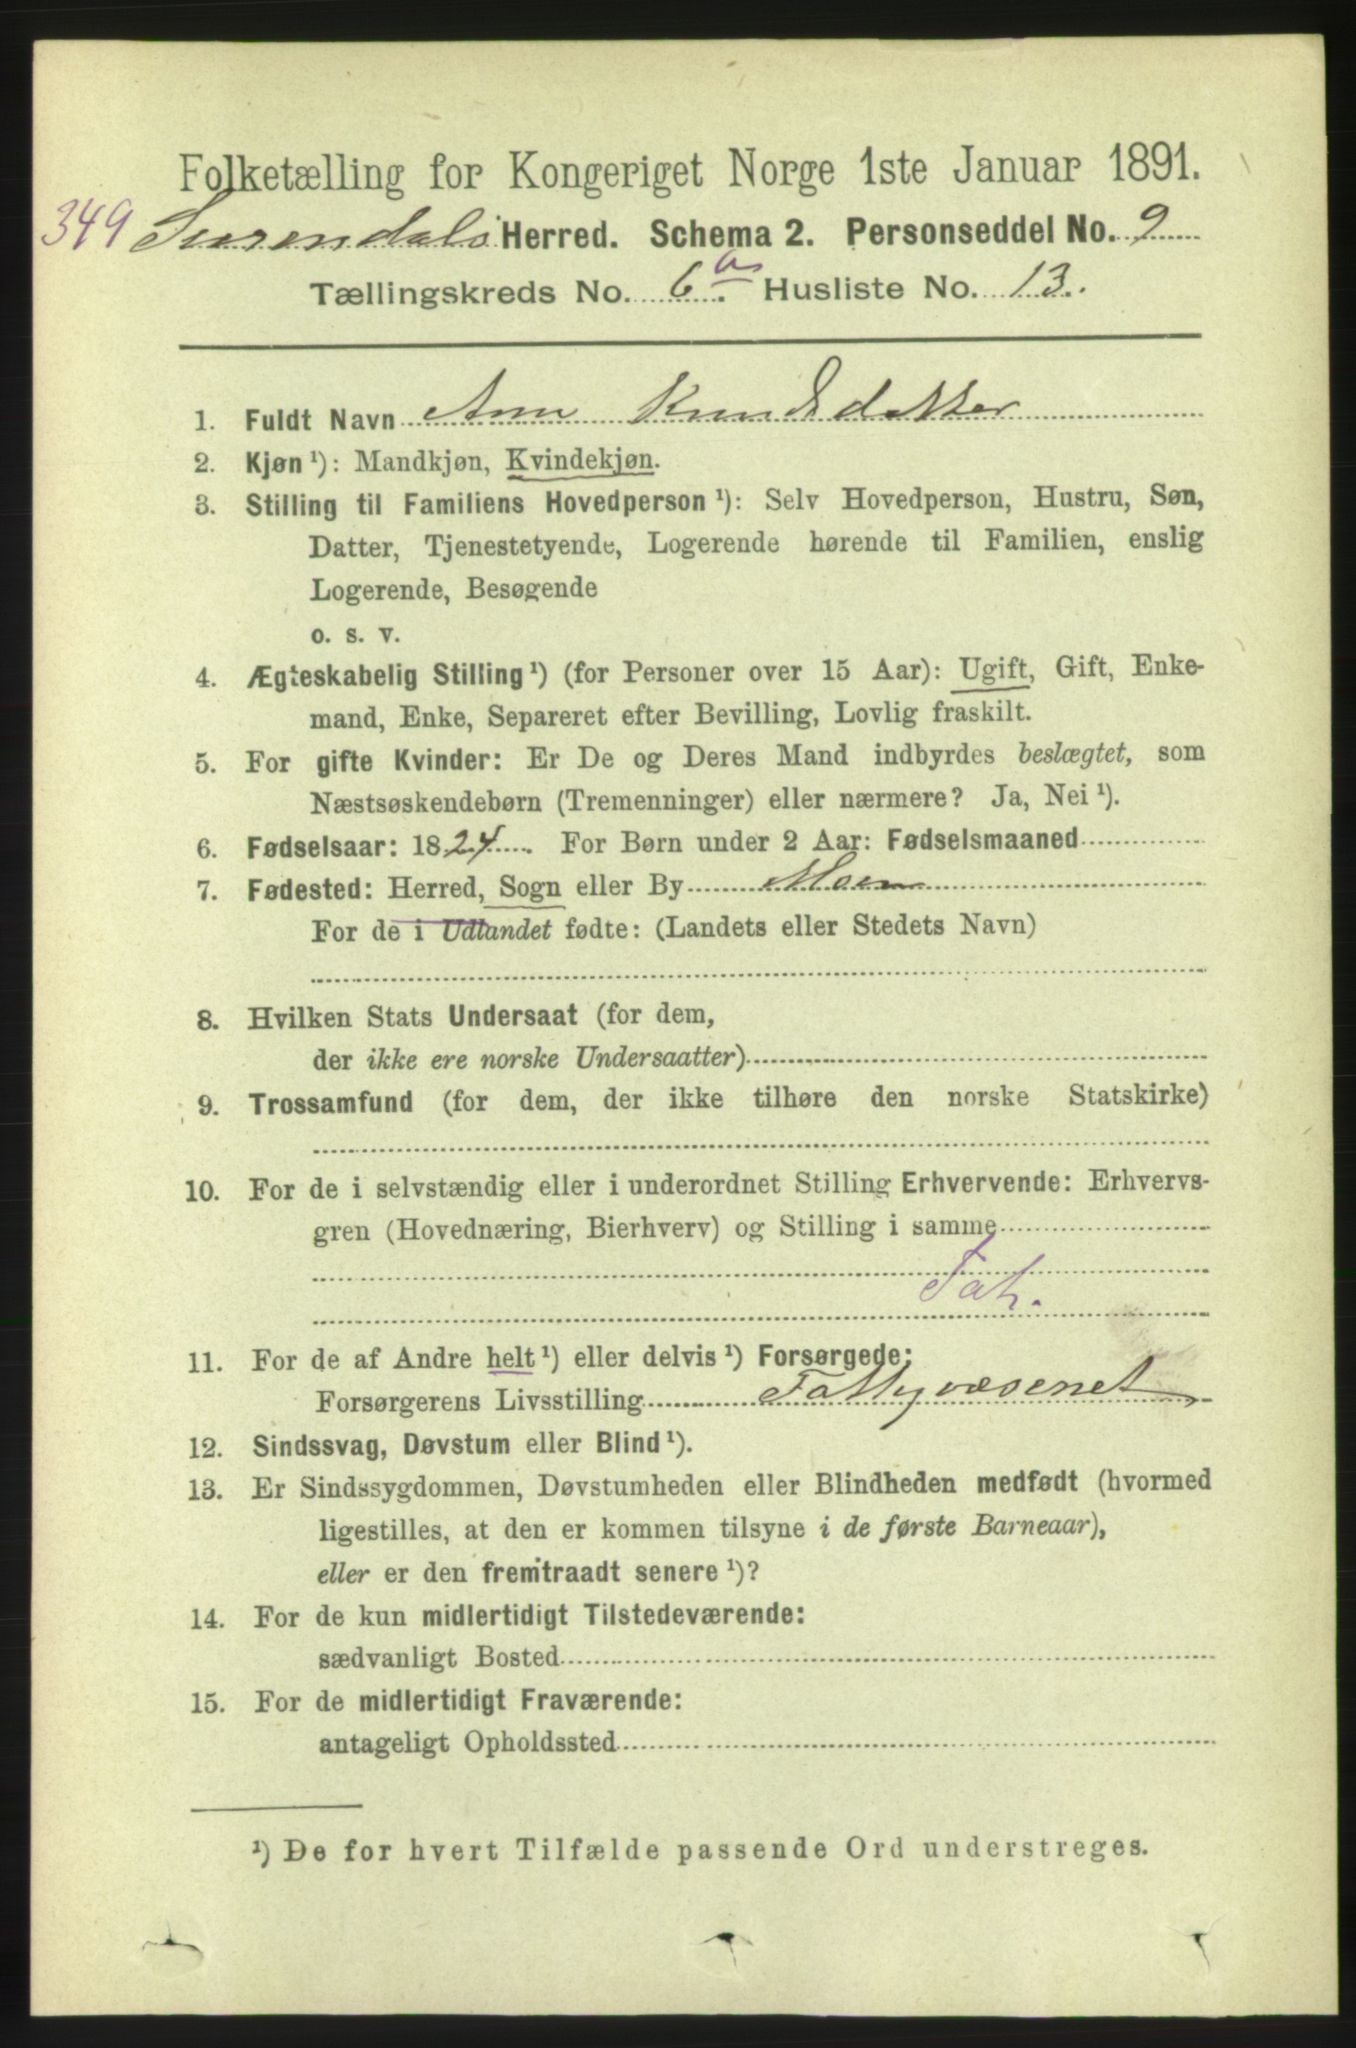 Folketælling for Kongeriget Norge 1ste Januar 1891.
349 Surendals Herred. Schema 2. Personseddel No. 9
Tællingskreds No. 6 a. Husliste No. 13.
1. Fuldt Navn Ann Knudsdatter
2. Kjøn ¹): Mandkjøn, Kvindekjøn.
3. Stilling til Familiens Hovedperson ¹): Selv Hovedperson, Hustru, Søn,
Datter, Tjenestetyende, Logerende hørende til Familien, enslig
Logerende, Besøgende
o. s. v.
4. Ægteskabelig Stilling ¹) (for Personer over 15 Aar): Ugift, Gift, Enke-
mand, Enke, Separeret efter Bevilling, Lovlig fraskilt.
5. For gifte Kvinder: Er De og Deres Mand indbyrdes beslægtet, som
Næstsøskendebørn (Tremenninger) eller nærmere? Ja, Nei ¹).
6. Fødselsaar: 1824. For Børn under 2 Aar: Fødselsmaaned
7. Fødested: Herred, Sogn eller By Moen
For de i Udlandet fødte: (Landets eller Stedets Navn)
8. Hvilken Stats Undersaat (for dem,
der ikke ere norske Undersaatter)
9. Trossamfund (for dem, der ikke tilhøre den norske Statskirke)
10. For de i selvstændig eller i underordnet Stilling Erhvervende: Erhvervs-
gren (Hovednæring, Bierhverv) og Stilling i samme
Fat.
11. For de af Andre helt ¹) eller delvis ¹) Forsørgede:
Forsørgerens Livsstilling Fattigvæsenet
12. Sindssvag, Døvstum eller Blind ¹).
13. Er Sindssygdommen, Døvstumheden eller Blindheden medfødt (hvormed
ligestilles, at den er kommen tilsyne i de første Barneaar),
eller er den fremtraadt senere ¹)?
14. For de kun midlertidigt Tilstedeværende:
sædvanligt Bosted
15. For de midlertidigt Fraværende:
antageligt Opholdssted
¹) De for hvert Tilfælde passende Ord understreges.